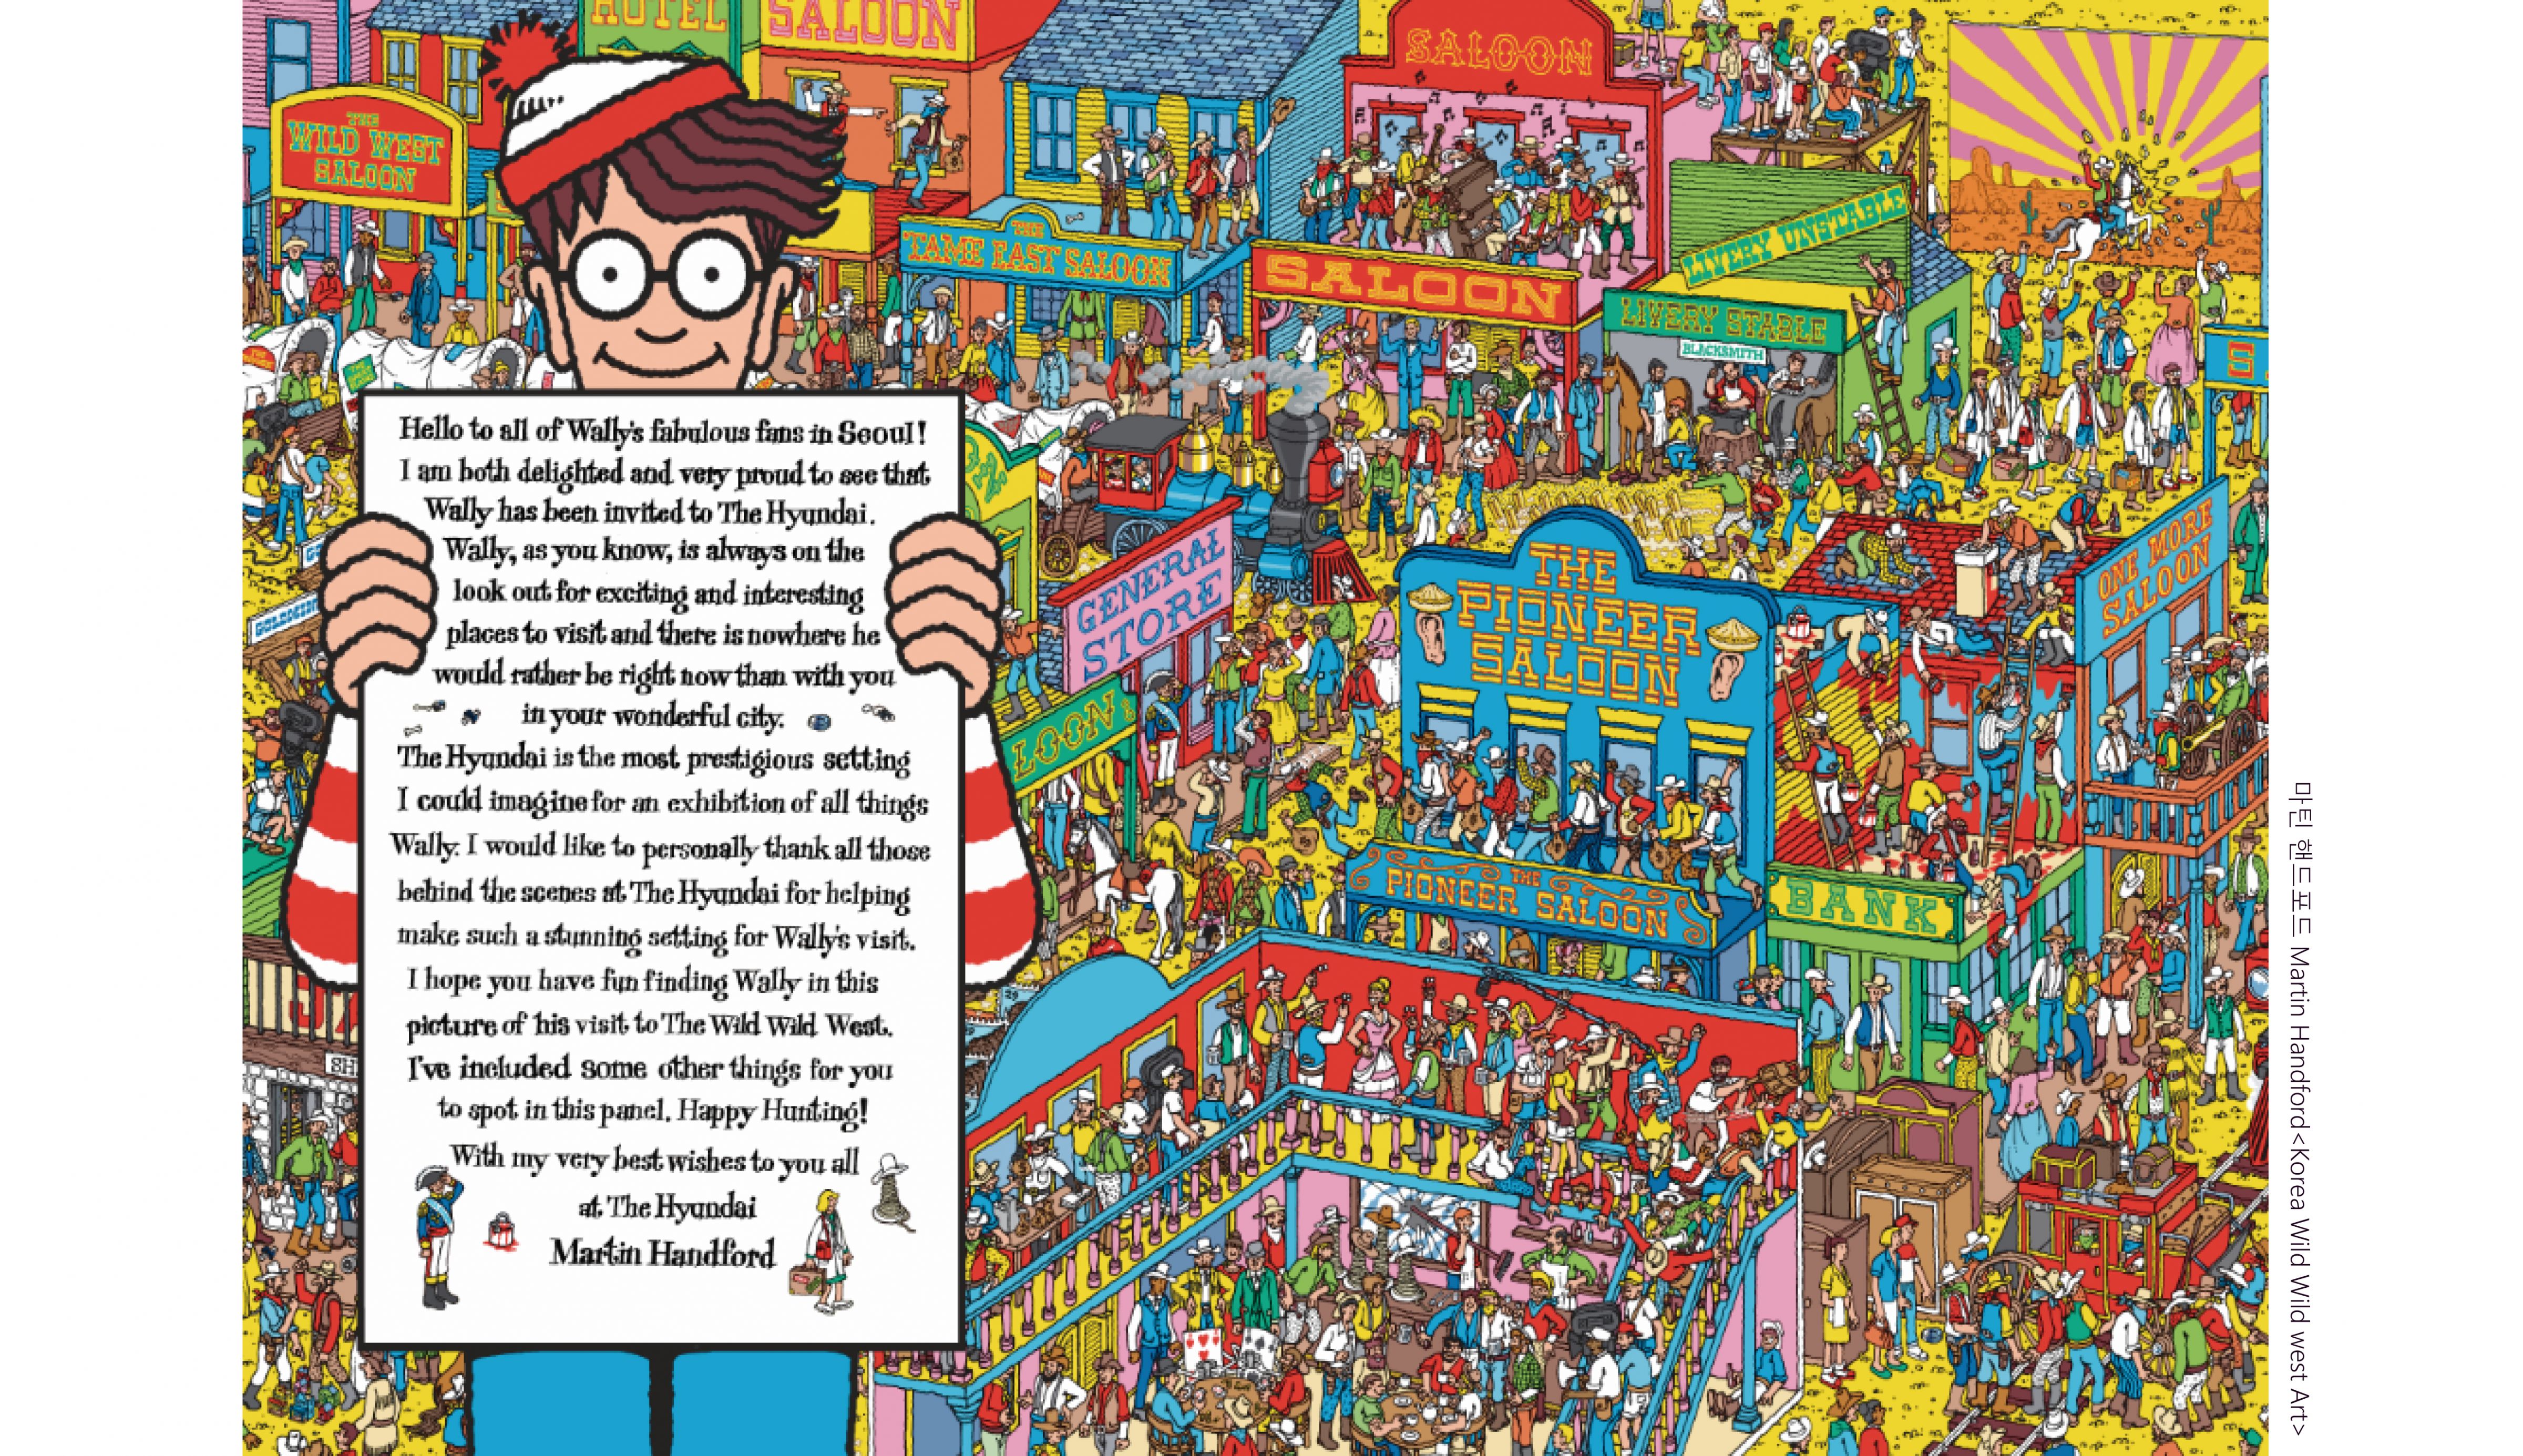 HOTEL
SALOON
THE
WILD WEST
SALOON
THE
TAME EAST SALOON
SALOON
SALOON
LIVERY UNSTABLE
LIVERY STABLE
BLACKSMITH
Hello to all of Wally's fabulous fans in Seoul!
I am both delighted and very proud to see that
Wally has been invited to The Hyundai.
Wally, as you know, is always on the
look out for exciting and interesting
places to visit and there is nowhere he
would rather be right now than with you
in your wonderful city.
The Hyundai is the most prestigious setting
I could imagine for an exhibition of all things
Wally. I would like to personally thank all those
behind the scenes at The Hyundai for helping
make such a stunning setting for Wally's visit.
I hope you have fun finding Wally in this
picture of his visit to The Wild Wild West.
I've included some other things for you
to spot in this panel. Happy Hunting!
With my very best wishes to you all
at The Hyundai
Martin Handford
GENERAL
STORE
LOON
THE
PIONEER
SALOON
THE
PIONEER SALOON
ONE MORE
SALOON
BANK
SH
마틴 핸드포드 Martin Handford<Korea Wild Wild west Art>